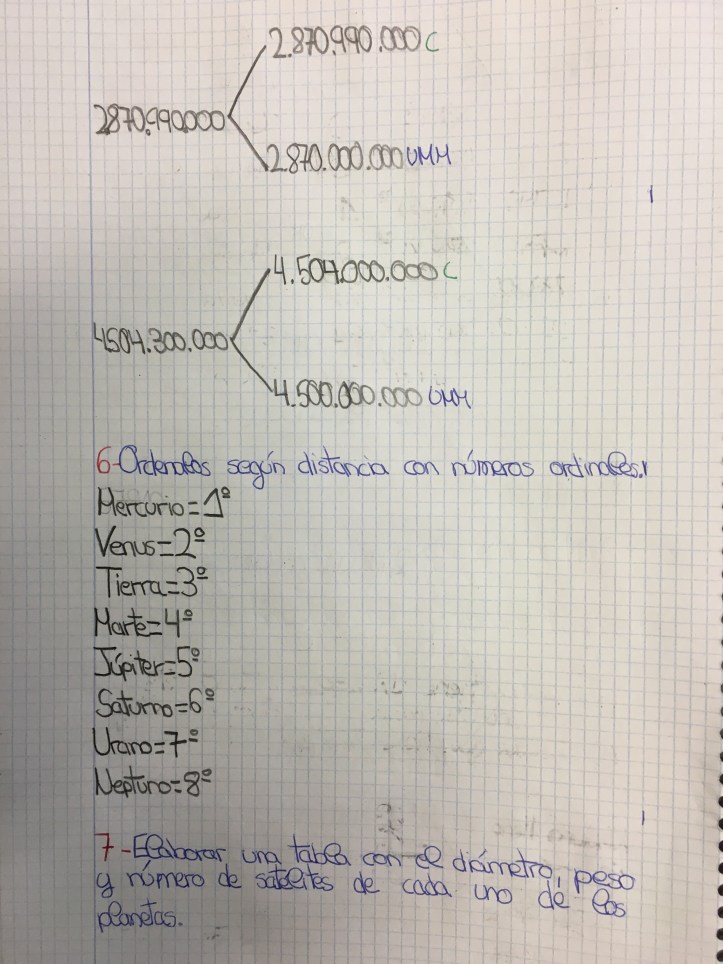 2.870.990.000 C
2870.990.000
2.870.000.000 UMM
4.504.000.000 C
4504.300.000
4.500.000.000 UMM
6-Ordenalos según distancia con números ordinales.
Mercurio=1º
Venus=2º
Tierra=3º
Marte=4º
Júpiter=5º
Saturno=6º
Urano=7º
Neptuno=8º
7-Elaborar una tabla con el diámetro, peso
y número de satelites de cada uno de los
planetas.